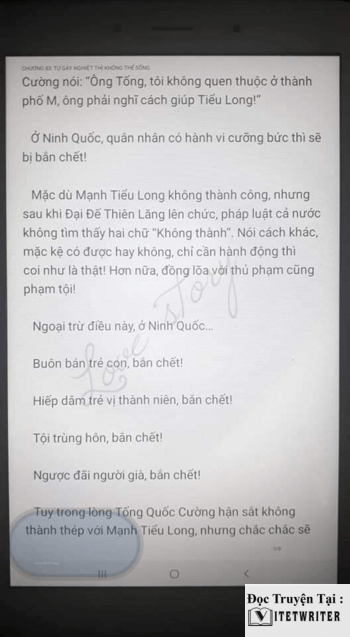 CHƯƠNG 83: TỰ GÂY NGHIỆT THÌ KHÔNG THỂ SỐNG
Cường nói: “Ông Tống, tôi không quen thuộc ở thành
phố M, ông phải nghĩ cách giúp Tiểu Long!”
Ở Ninh Quốc, quân nhân có hành vi cưỡng bức thì sẽ
bị bắn chết!
Mặc dù Mạnh Tiểu Long không thành công, nhưng
sau khi Đại Đế Thiên Lăng lên chức, pháp luật cả nước
không tìm thấy hai chữ “Không thành”. Nói cách khác,
mặc kệ có được hay không, chỉ cần hành động thì
coi như là thật! Hơn nữa, đồng lõa với thủ phạm cũng
phạm tội!
Love story
Ngoại trừ điều này, ở Ninh Quốc...
Buôn bán trẻ con, bắn chết!
Hiếp dâm trẻ vị thành niên, bắn chết!
Tội trùng hôn, bắn chết!
Ngược đãi người già, bắn chết!
Tuy trong lòng Tống Quốc Cường hận sắt không
thành thép với Mạnh Tiểu Long, nhưng chắc chắc sẽ
Đọc Truyện Tại :
VIETWRITER